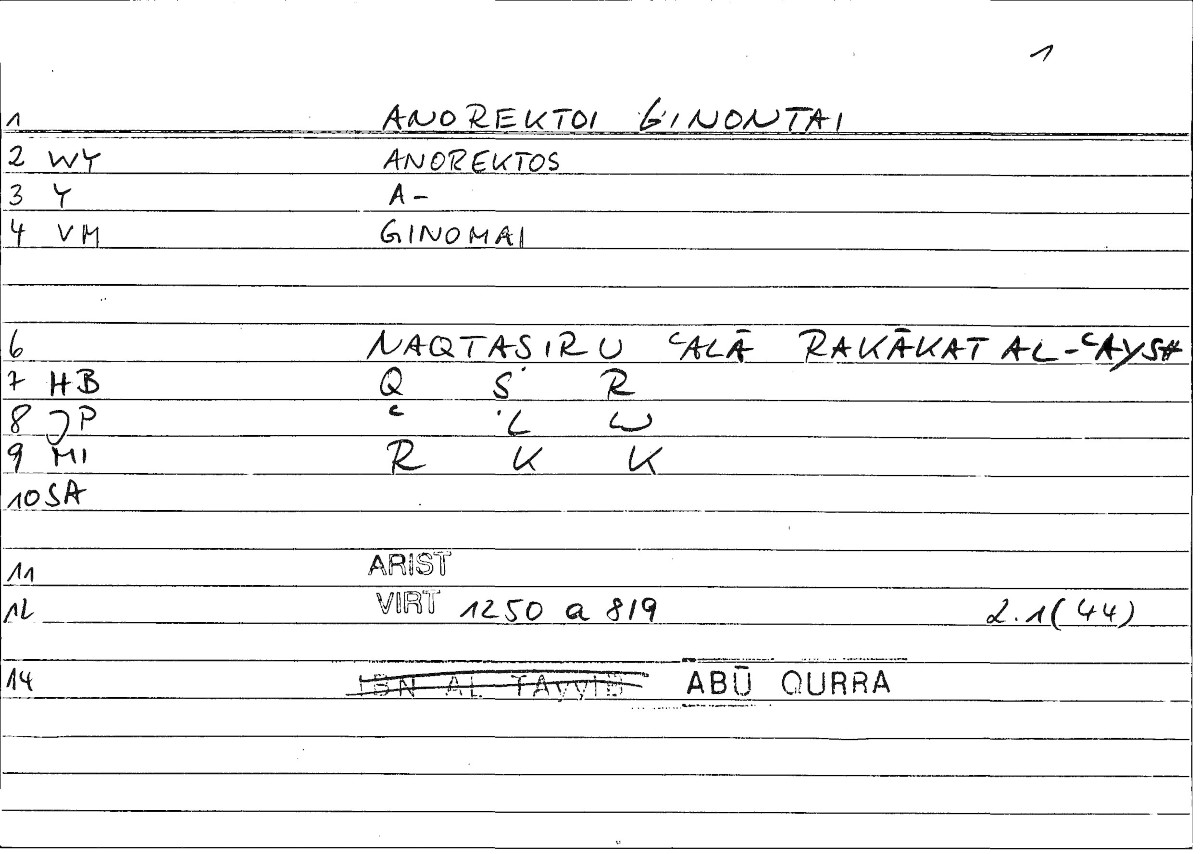 1
1 ANOREKTOI GINONTAI
2 WY ANOREKTOS
3 Y A-
4 VM GINOMAI
6 NAQTASIRU ʿALĀ RAKĀKAT AL-ʿAYSH
7 HB Q Ṣ R
8 JP ʿ L W
9 MI R K K
10 SA
11 ARIST
12 VIRT 1250 a 8/9 2.1(44)
14 IBN AL TAYYIB ABŪ QURRA